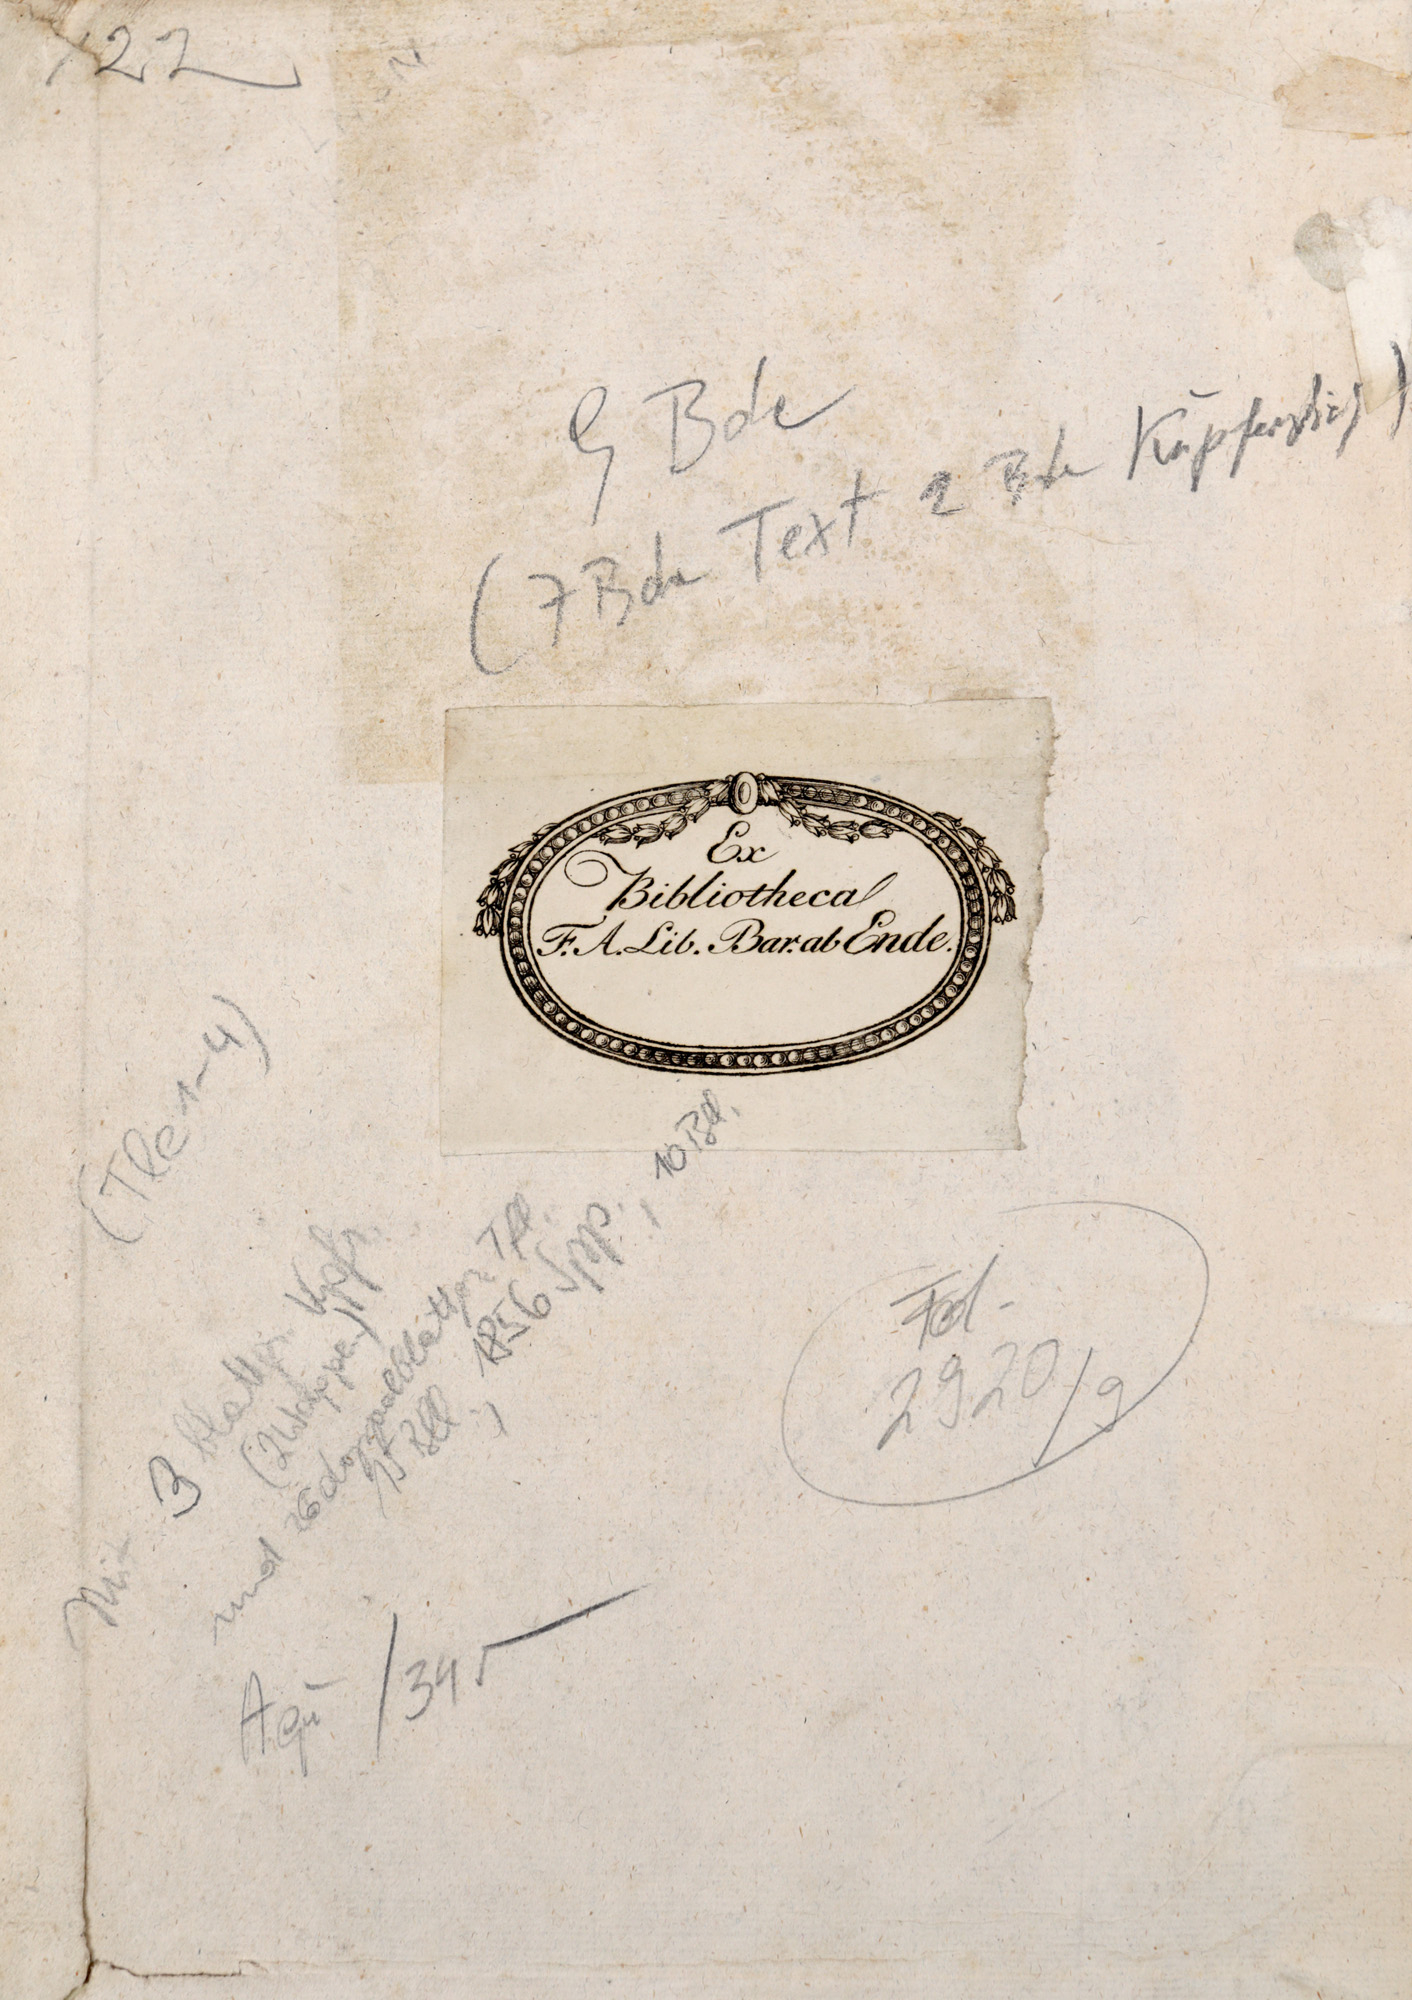 122
9 Bde
(7 Bde Text 2 Bde Kupferstich)
Ex
Bibliotheca
F. A. Lib. Bar. ab Ende.
(Tle 1-4)
Mit 3 blattgr. Kpfr.
(2 Wappen)
und 26 doppelblattgr. Tfl.
9 Bll., 1856 Spp., 10 Bll.
2920/9
/34